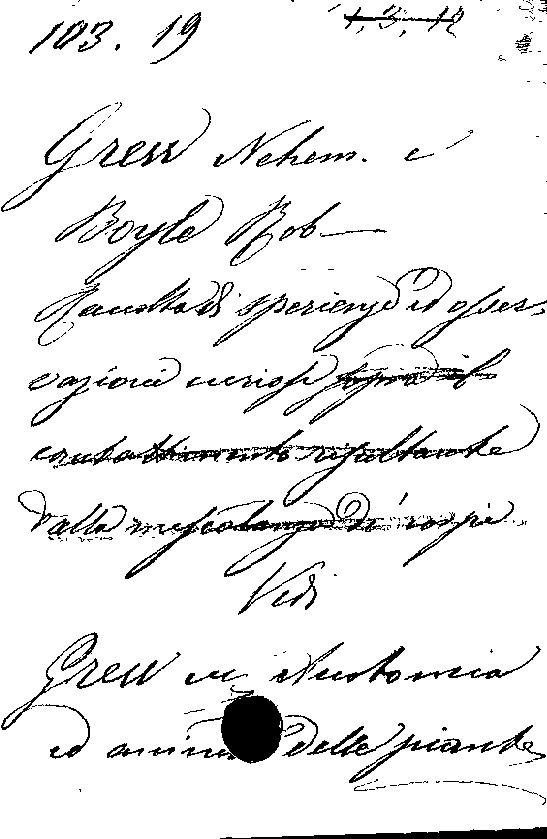 103. 19 1, 3, 12
Grew Nehem. e
Boyle Rob—
Raccolta di sperienze ed osser-
vazioni curiose sopra il
contastimento risultante
dalla mescolanza di corpi
Vedi
Grew ec Anatomia
ed anima delle piante